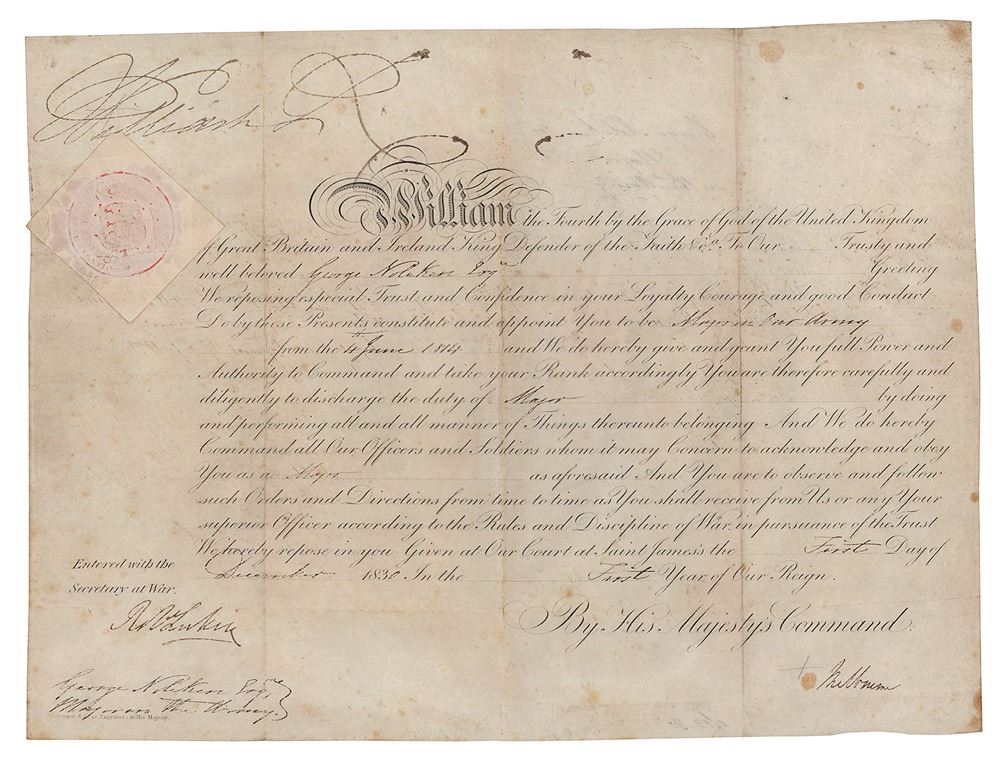 William R
William the Fourth by the Grace of God of the United Kingdom
of Great Britain and Ireland King Defender of the Faith &c. To Our Trusty and
well beloved George Noleken Esqre Greeting
We reposing especial Trust and Confidence in your Loyalty Courage and good Conduct
Do by these Presents constitute and appoint You to be Major in Our Army
from the 4th June 1814 and We do hereby give and grant You full Power and
Authority to Command and take your Rank accordingly You are therefore carefully and
diligently to discharge the duty of Major by doing
and performing all and all manner of Things thereunto belonging And We do hereby
Command all Our Officers and Soldiers whom it may Concern to acknowledge and obey
You as a Major as aforesaid And You are to observe and follow
such Orders and Directions from time to time as You shall receive from Us or any Your
superior Officer according to the Rules and Discipline of War in pursuance of the Trust
We hereby repose in you Given at Our Court at Saint James's the First Day of
December 1830 In the First Year of Our Reign.
Entered with the
Secretary at War.
By His Majesty's Command.
Melbourne
George Noleken Esqre
Major in the Army.
Engravers to His Majesty.